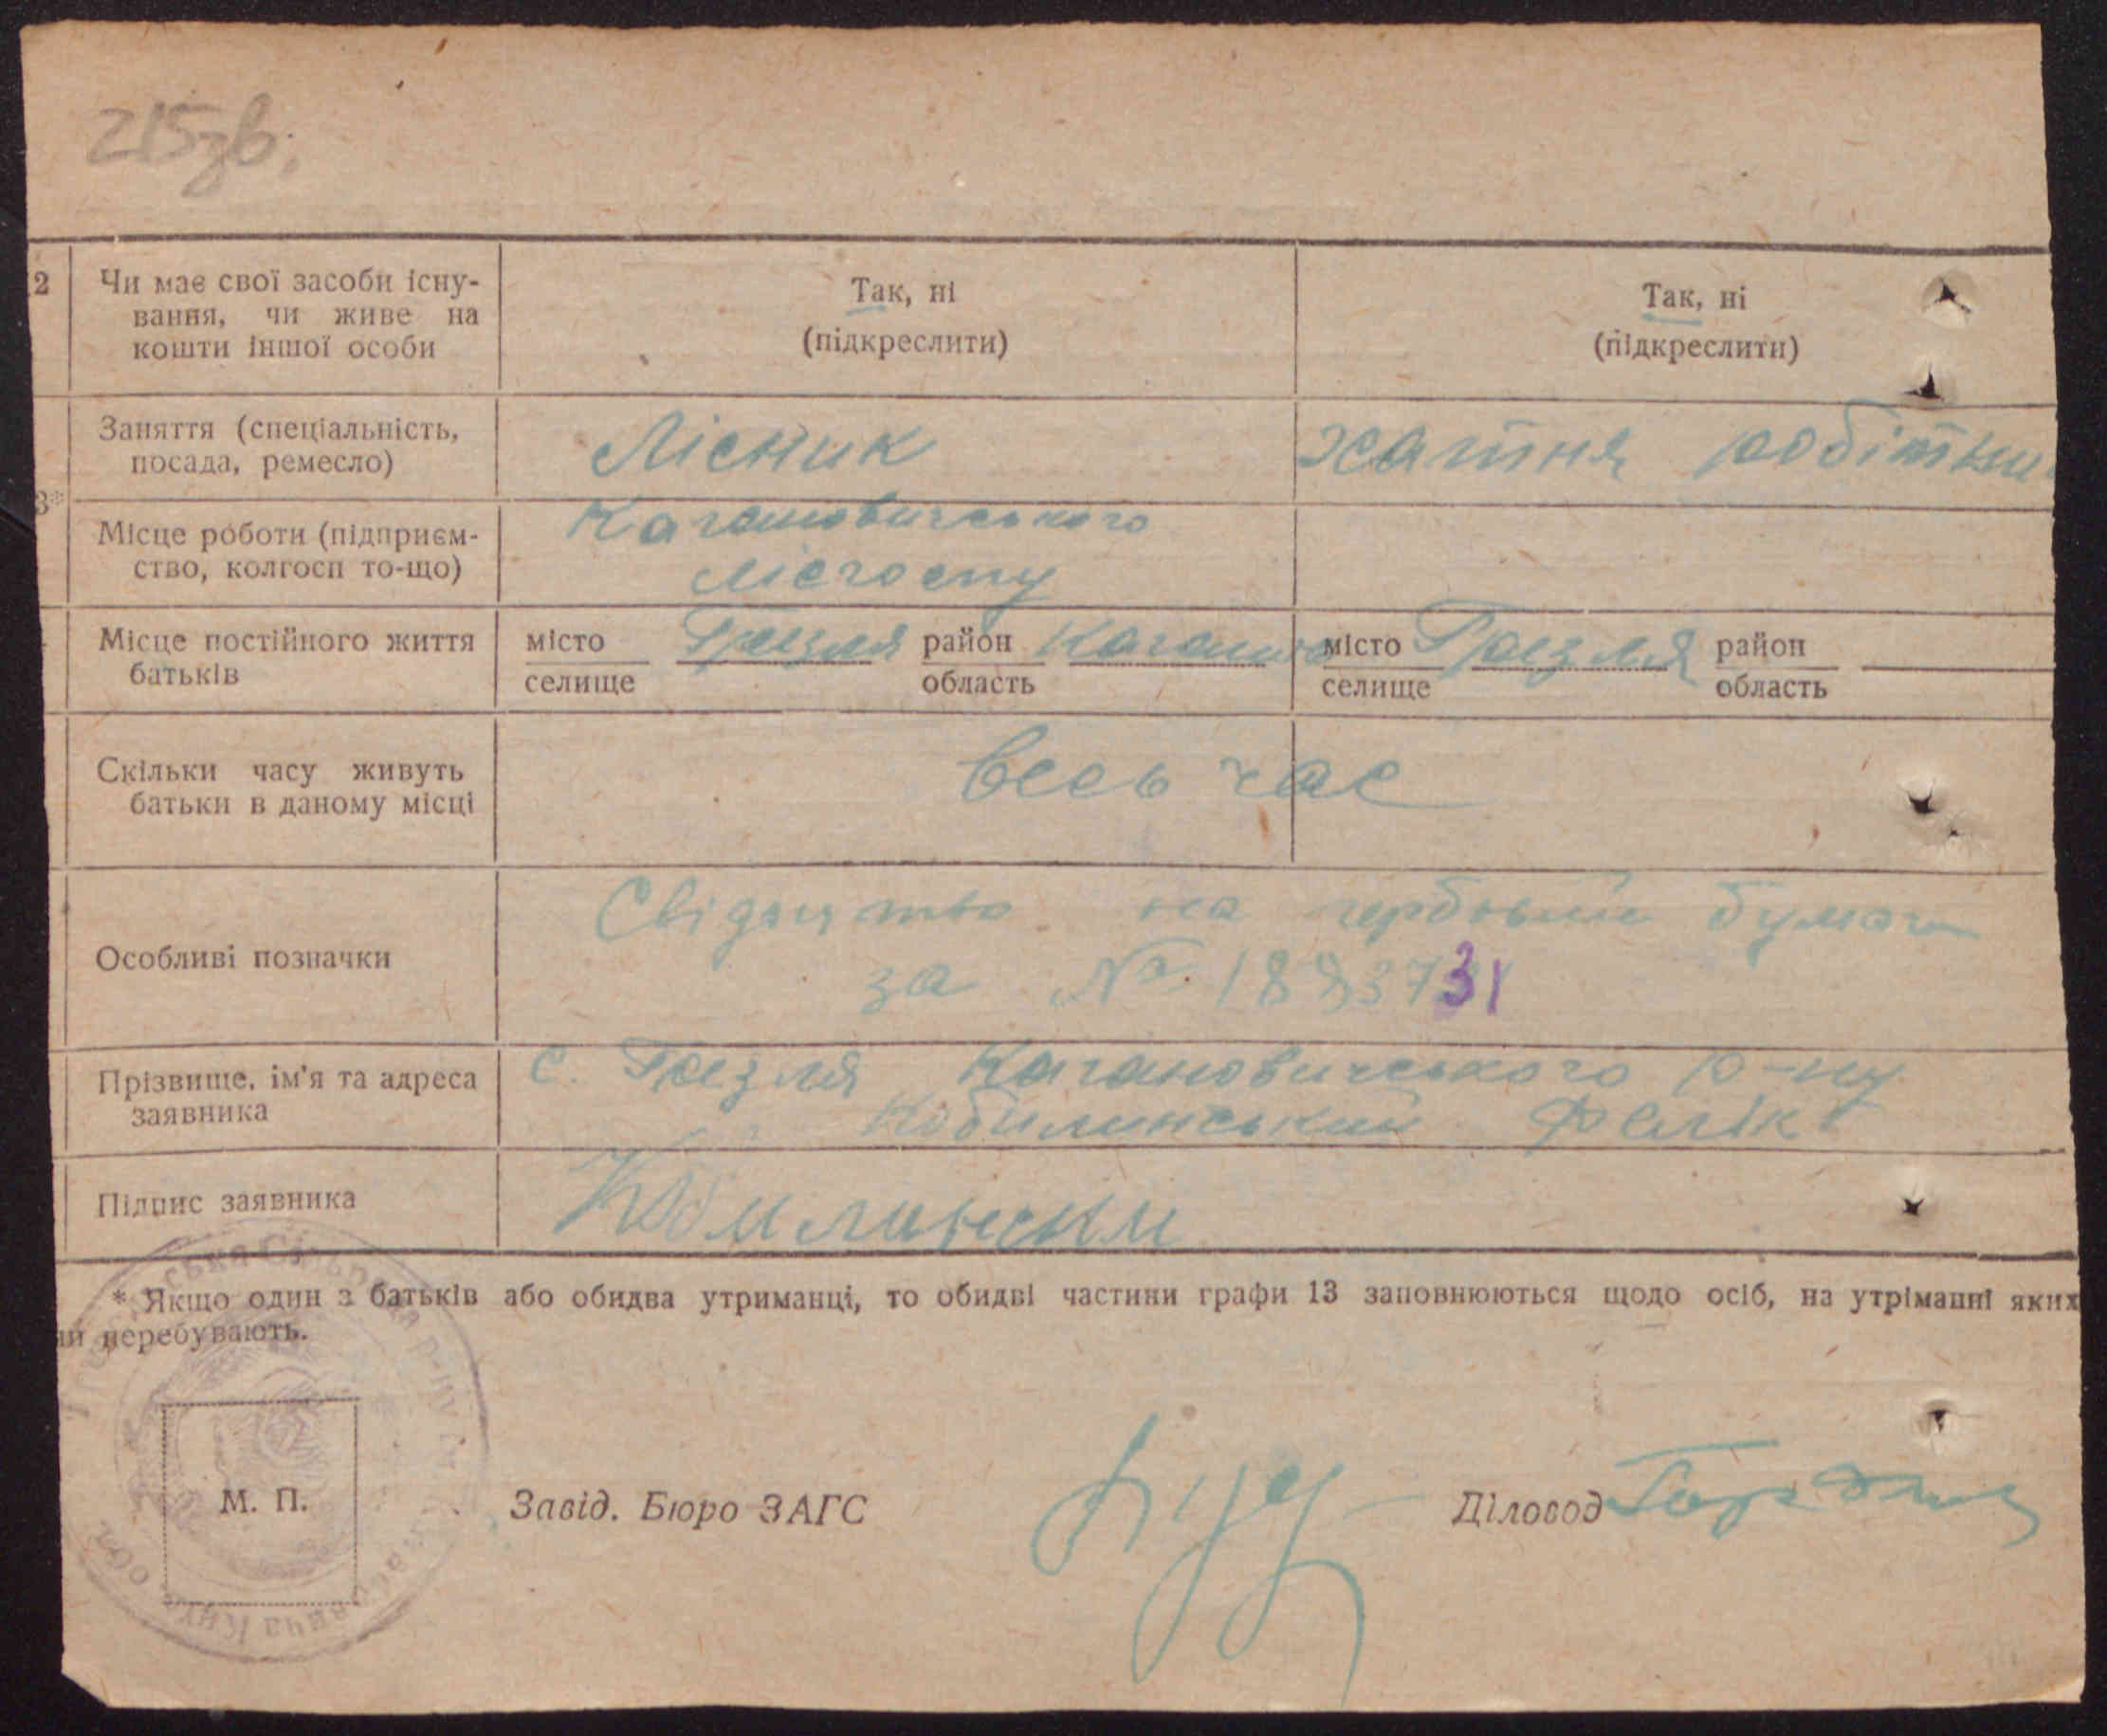 215зв.
2 Чи має свої засоби існу-
вання, чи живе на
кошти іншої особи
Так, ні
(підкреслити)
Так, ні
(підкреслити)
Заняття (спеціальність,
посада, ремесло)
Лісник
хатня робітни
3*
Місце роботи (підприєм-
ство, колгосп то-що)
Кагановичського
лісгоспу
Місце постійного життя
батьків
місто Грезля район Каганов
селище область
місто Грезля район
селище область
Скільки часу живуть
батьки в даному місці
весь час
Особливі позначки
Свідоцтво на гербовій бумаги
за № 1883731
Прізвище, ім'я та адреса
заявника
с. Грезля Кагановичського р-ну
Кобилинський Фелікс
Підпис заявника
Кобилинский
* Якщо один з батьків або обидва утриманці, то обидві частини графи 13 заповнюються щодо осіб, на утріманні яких
перебувають.
М. П.
Завід. Бюро ЗАГС
Діловод